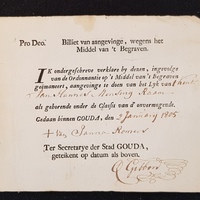 Pro Deo. Billet van aangevinge, wegens het
Middel van 't Begraven.
IK ondergeschreve verklare by dezen, ingevolge
van de Ordonnantie op 't Middel van 't Begraven
geëmaneert, aangevinge te doen van het Lyk van
als gehorende onder de Classis van d'onvermogende.
Gedaan binnen GOUDA, den 2 January 1805
Ter Secretarye der Stad GOUDA,
geteikent op datum als boven.